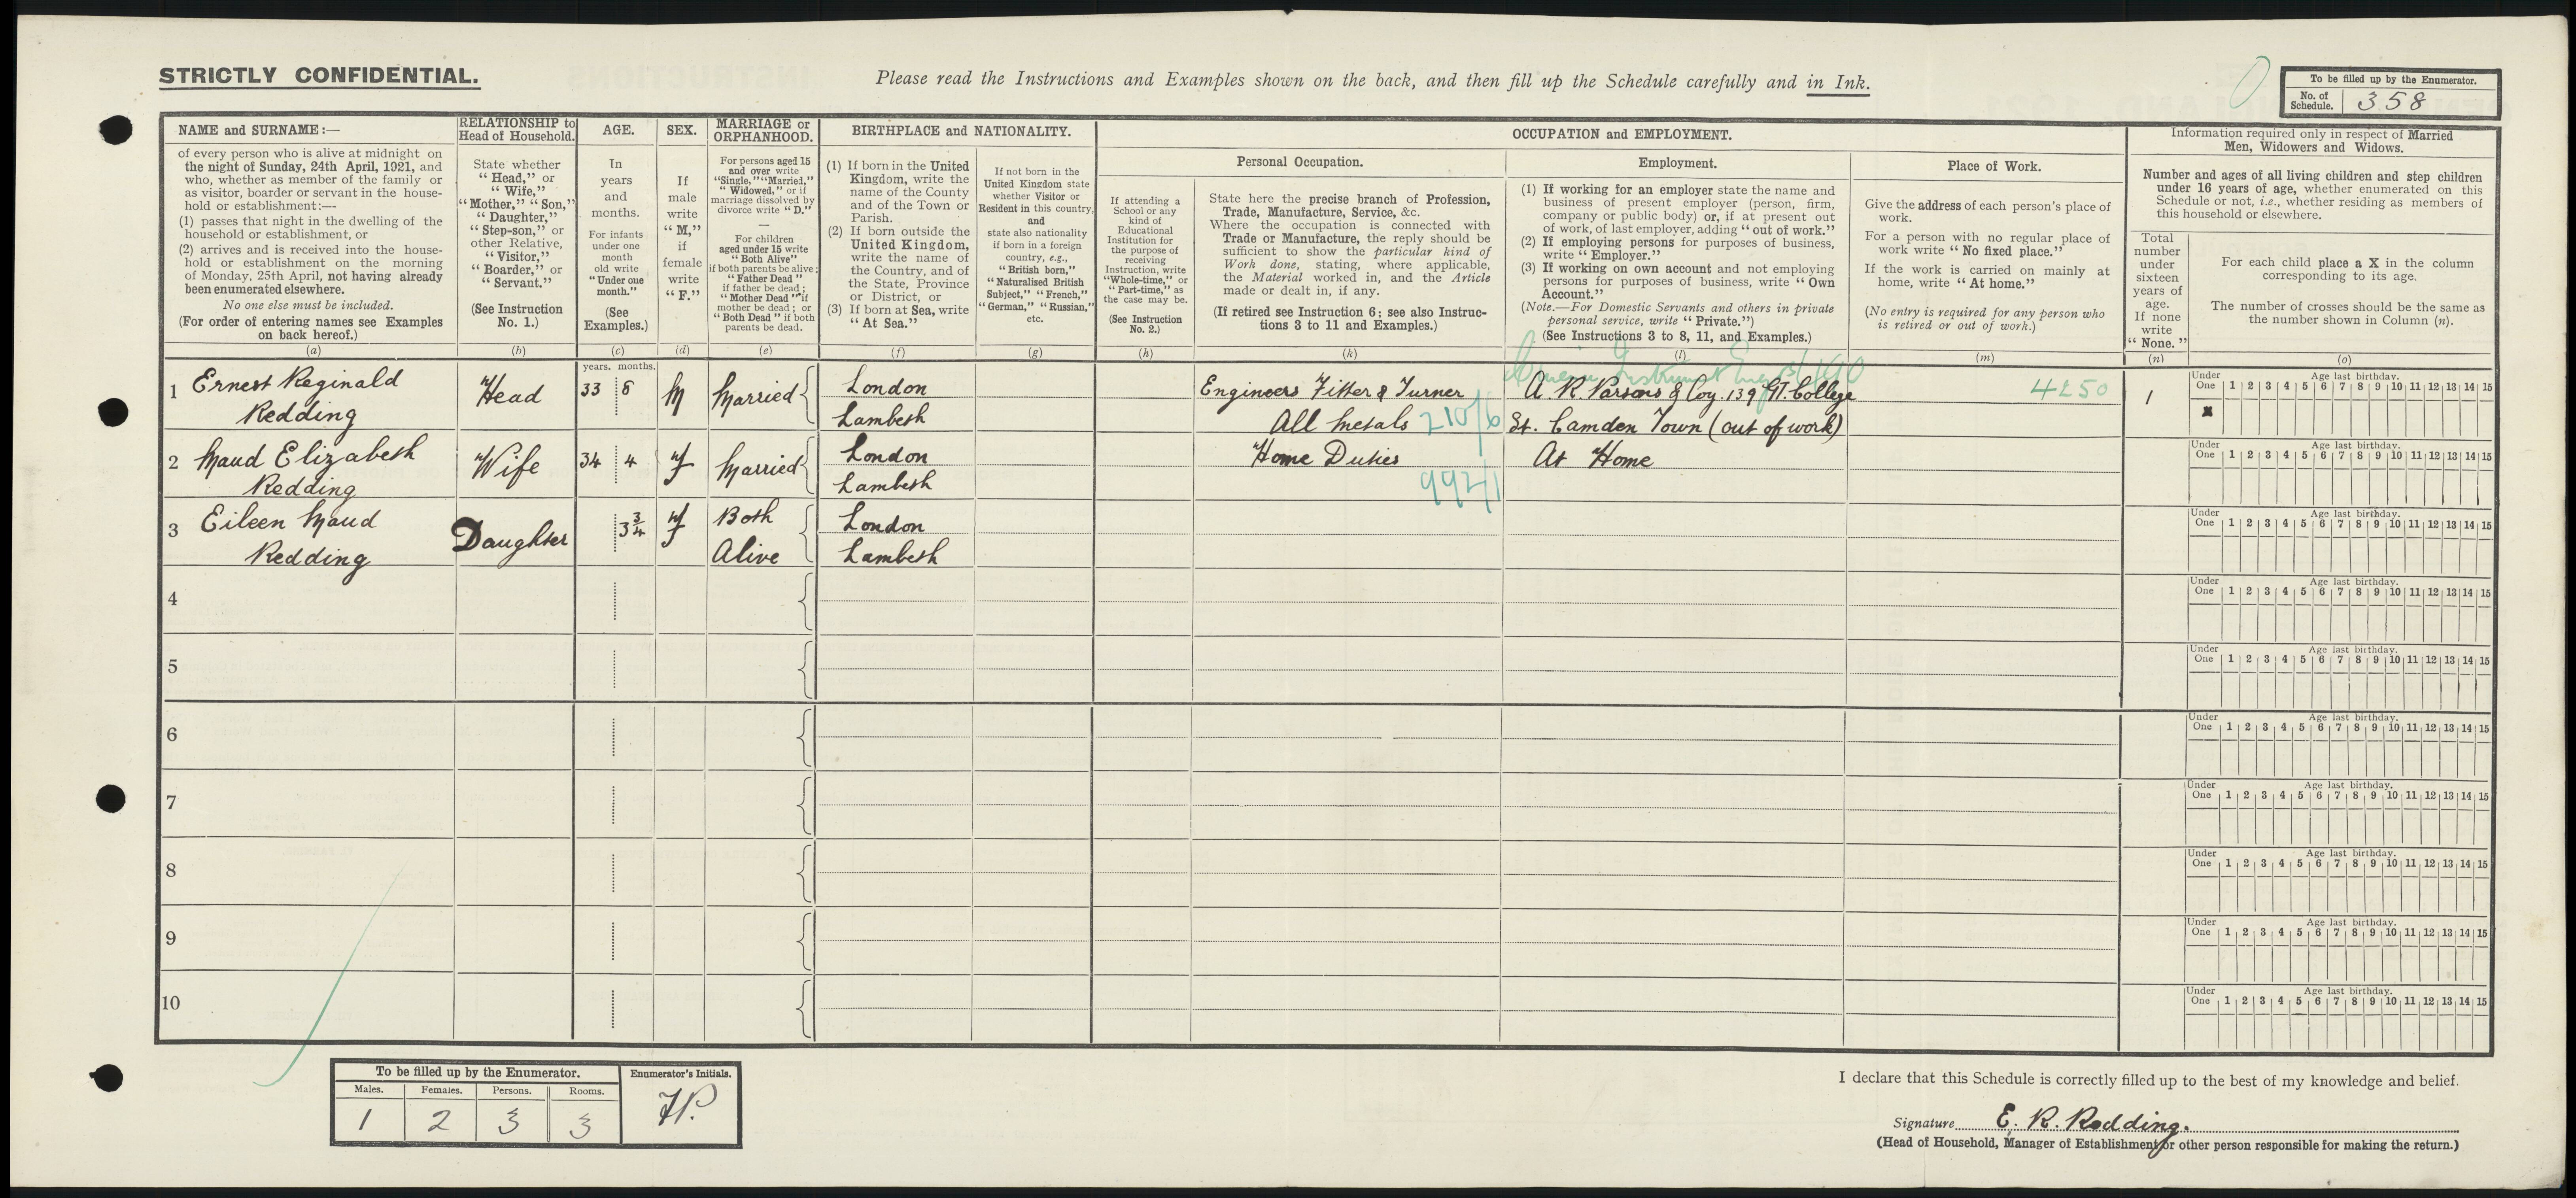 STRICTLY CONFIDENTIAL.
Please read the Instructions and Examples shown on the back, and then fill up the Schedule carefully and in Ink.
To be filled up by the Enumerator.
No. of Schedule. 358
NAME and SURNAME:—
of every person who is alive at midnight on
the night of Sunday, 24th April, 1921, and
who, whether as member of the family or
as visitor, boarder or servant in the house-
hold or establishment:—
(1) passes that night in the dwelling of the
household or establishment, or
(2) arrives and is received into the house-
hold or establishment on the morning
of Monday, 25th April, not having already
been enumerated elsewhere.
No one else must be included.
(For order of entering names see Examples
on back hereof.)
(a)
RELATIONSHIP to
Head of Household.
State whether
"Head," or
"Wife,"
"Mother," "Son,"
"Daughter,"
"Step-son," or
other Relative,
"Visitor,"
"Boarder," or
"Servant."
(See Instruction
No. 1.)
(b)
AGE.
In
years
and
months.
For infants
under one
month
old write
"Under one
month."
(See
Examples.)
(c)
SEX.
If
male
write
"M,"
if
female
write
"F."
(d)
MARRIAGE or
ORPHANHOOD.
For persons aged 15
and over write
"Single," "Married,"
"Widowed," or if
marriage dissolved by
divorce write "D."
—
For children
aged under 15 write
"Both Alive"
if both parents be alive;
"Father Dead"
if father be dead;
"Mother Dead" if
mother be dead; or
"Both Dead" if both
parents be dead.
(e)
BIRTHPLACE and NATIONALITY.
(1) If born in the United
Kingdom, write the
name of the County
and of the Town or
Parish.
(2) If born outside the
United Kingdom,
write the name of
the Country, and of
the State, Province
or District, or
(3) If born at Sea, write
"At Sea."
(f)
If not born in the
United Kingdom state
whether Visitor or
Resident in this country,
and
state also nationality
if born in a foreign
country, e.g.,
"British born,"
"Naturalised British
Subject," "French,"
"German," "Russian,"
etc.
(g)
OCCUPATION and EMPLOYMENT.
If attending a
School or any
kind of
Educational
Institution for
the purpose of
receiving
Instruction, write
"Whole-time," or
"Part-time," as
the case may be.
(See Instruction
No. 2.)
(h)
Personal Occupation.
State here the precise branch of Profession,
Trade, Manufacture, Service, &c.
Where the occupation is connected with
Trade or Manufacture, the reply should be
sufficient to show the particular kind of
Work done, stating, where applicable,
the Material worked in, and the Article
made or dealt in, if any.
(If retired see Instruction 6; see also Instruc-
tions 3 to 11 and Examples.)
(k)
Employment.
(1) If working for an employer state the name and
business of present employer (person, firm,
company or public body) or, if at present out
of work, of last employer, adding "out of work."
(2) If employing persons for purposes of business,
write "Employer."
(3) If working on own account and not employing
persons for purposes of business, write "Own
Account."
(Note.—For Domestic Servants and others in private
personal service, write "Private.")
(See Instructions 3 to 8, 11, and Examples.)
(l)
Place of Work.
Give the address of each person's place of
work.
For a person with no regular place of
work write "No fixed place."
If the work is carried on mainly at
home, write "At home."
(No entry is required for any person who
is retired or out of work.)
(m)
Information required only in respect of Married
Men, Widowers and Widows.
Number and ages of all living children and step children
under 16 years of age, whether enumerated on this
Schedule or not, i.e., whether residing as members of
this household or elsewhere.
Total
number
under
sixteen
years of
age.
If none
write
"None."
(n)
For each child place a X in the column
corresponding to its age.
The number of crosses should be the same as
the number shown in Column (n).
(o)
years. months.
1 Ernest Reginald Head 33 8 M Married London Engineers Fitter & Turner A R Parsons & Coy. 139 Gt. College 4250 1
Redding Lambeth All Metals 210/6 St. Camden Town (out of work)
Under One Age last birthday. 1 2 3 4 5 6 7 8 9 10 11 12 13 14 15
x
2 Maud Elizabeth Wife 34 4 F Married London Home Duties At Home
Redding Lambeth 992/1
Under One Age last birthday. 1 2 3 4 5 6 7 8 9 10 11 12 13 14 15
3 Eileen Maud Daughter 3¾ F Both London
Redding Alive Lambeth
Under One Age last birthday. 1 2 3 4 5 6 7 8 9 10 11 12 13 14 15
4
Under One Age last birthday. 1 2 3 4 5 6 7 8 9 10 11 12 13 14 15
5
Under One Age last birthday. 1 2 3 4 5 6 7 8 9 10 11 12 13 14 15
6
Under One Age last birthday. 1 2 3 4 5 6 7 8 9 10 11 12 13 14 15
7
Under One Age last birthday. 1 2 3 4 5 6 7 8 9 10 11 12 13 14 15
8
Under One Age last birthday. 1 2 3 4 5 6 7 8 9 10 11 12 13 14 15
9
Under One Age last birthday. 1 2 3 4 5 6 7 8 9 10 11 12 13 14 15
10
Under One Age last birthday. 1 2 3 4 5 6 7 8 9 10 11 12 13 14 15
To be filled up by the Enumerator.
Males. Females. Persons. Rooms.
1 2 3 3
Enumerator's Initials.
I declare that this Schedule is correctly filled up to the best of my knowledge and belief.
Signature E. R. Redding.
(Head of Household, Manager of Establishment or other person responsible for making the return.)